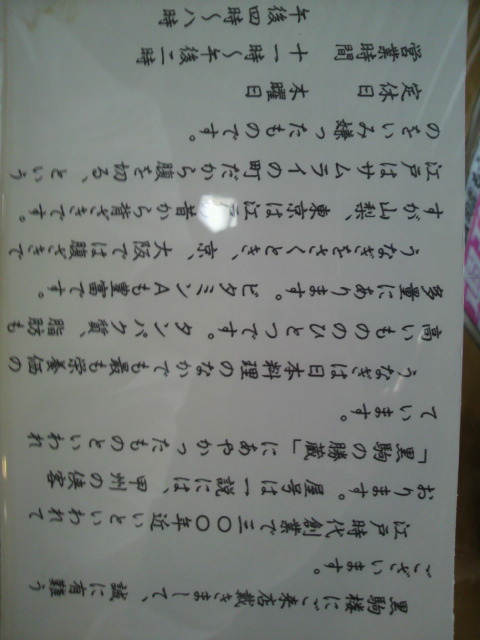 黒駒楼にご来店戴きまして、誠に有難う
ございます。
江戸時代創業で三〇〇年近いといわれて
おります。屋号は一説には、甲州の侠客
「黒駒の勝蔵」にあやかったものといわれ
ています。
うなぎは日本料理のなかでも最も栄養価の
高いもののひとつです。タンパク質、脂肪も
多量にあります。ビタミンAも豊富です。
うなぎをさくとき、京、大阪では腹ざきで
すが山梨、東京は江戸昔から背ざきです。
江戸はサムライの町だから腹を切る、という
のをいみ嫌ったものです。
定休日 木曜日
営業時間 十一時〜午後二時
午後四時〜八時